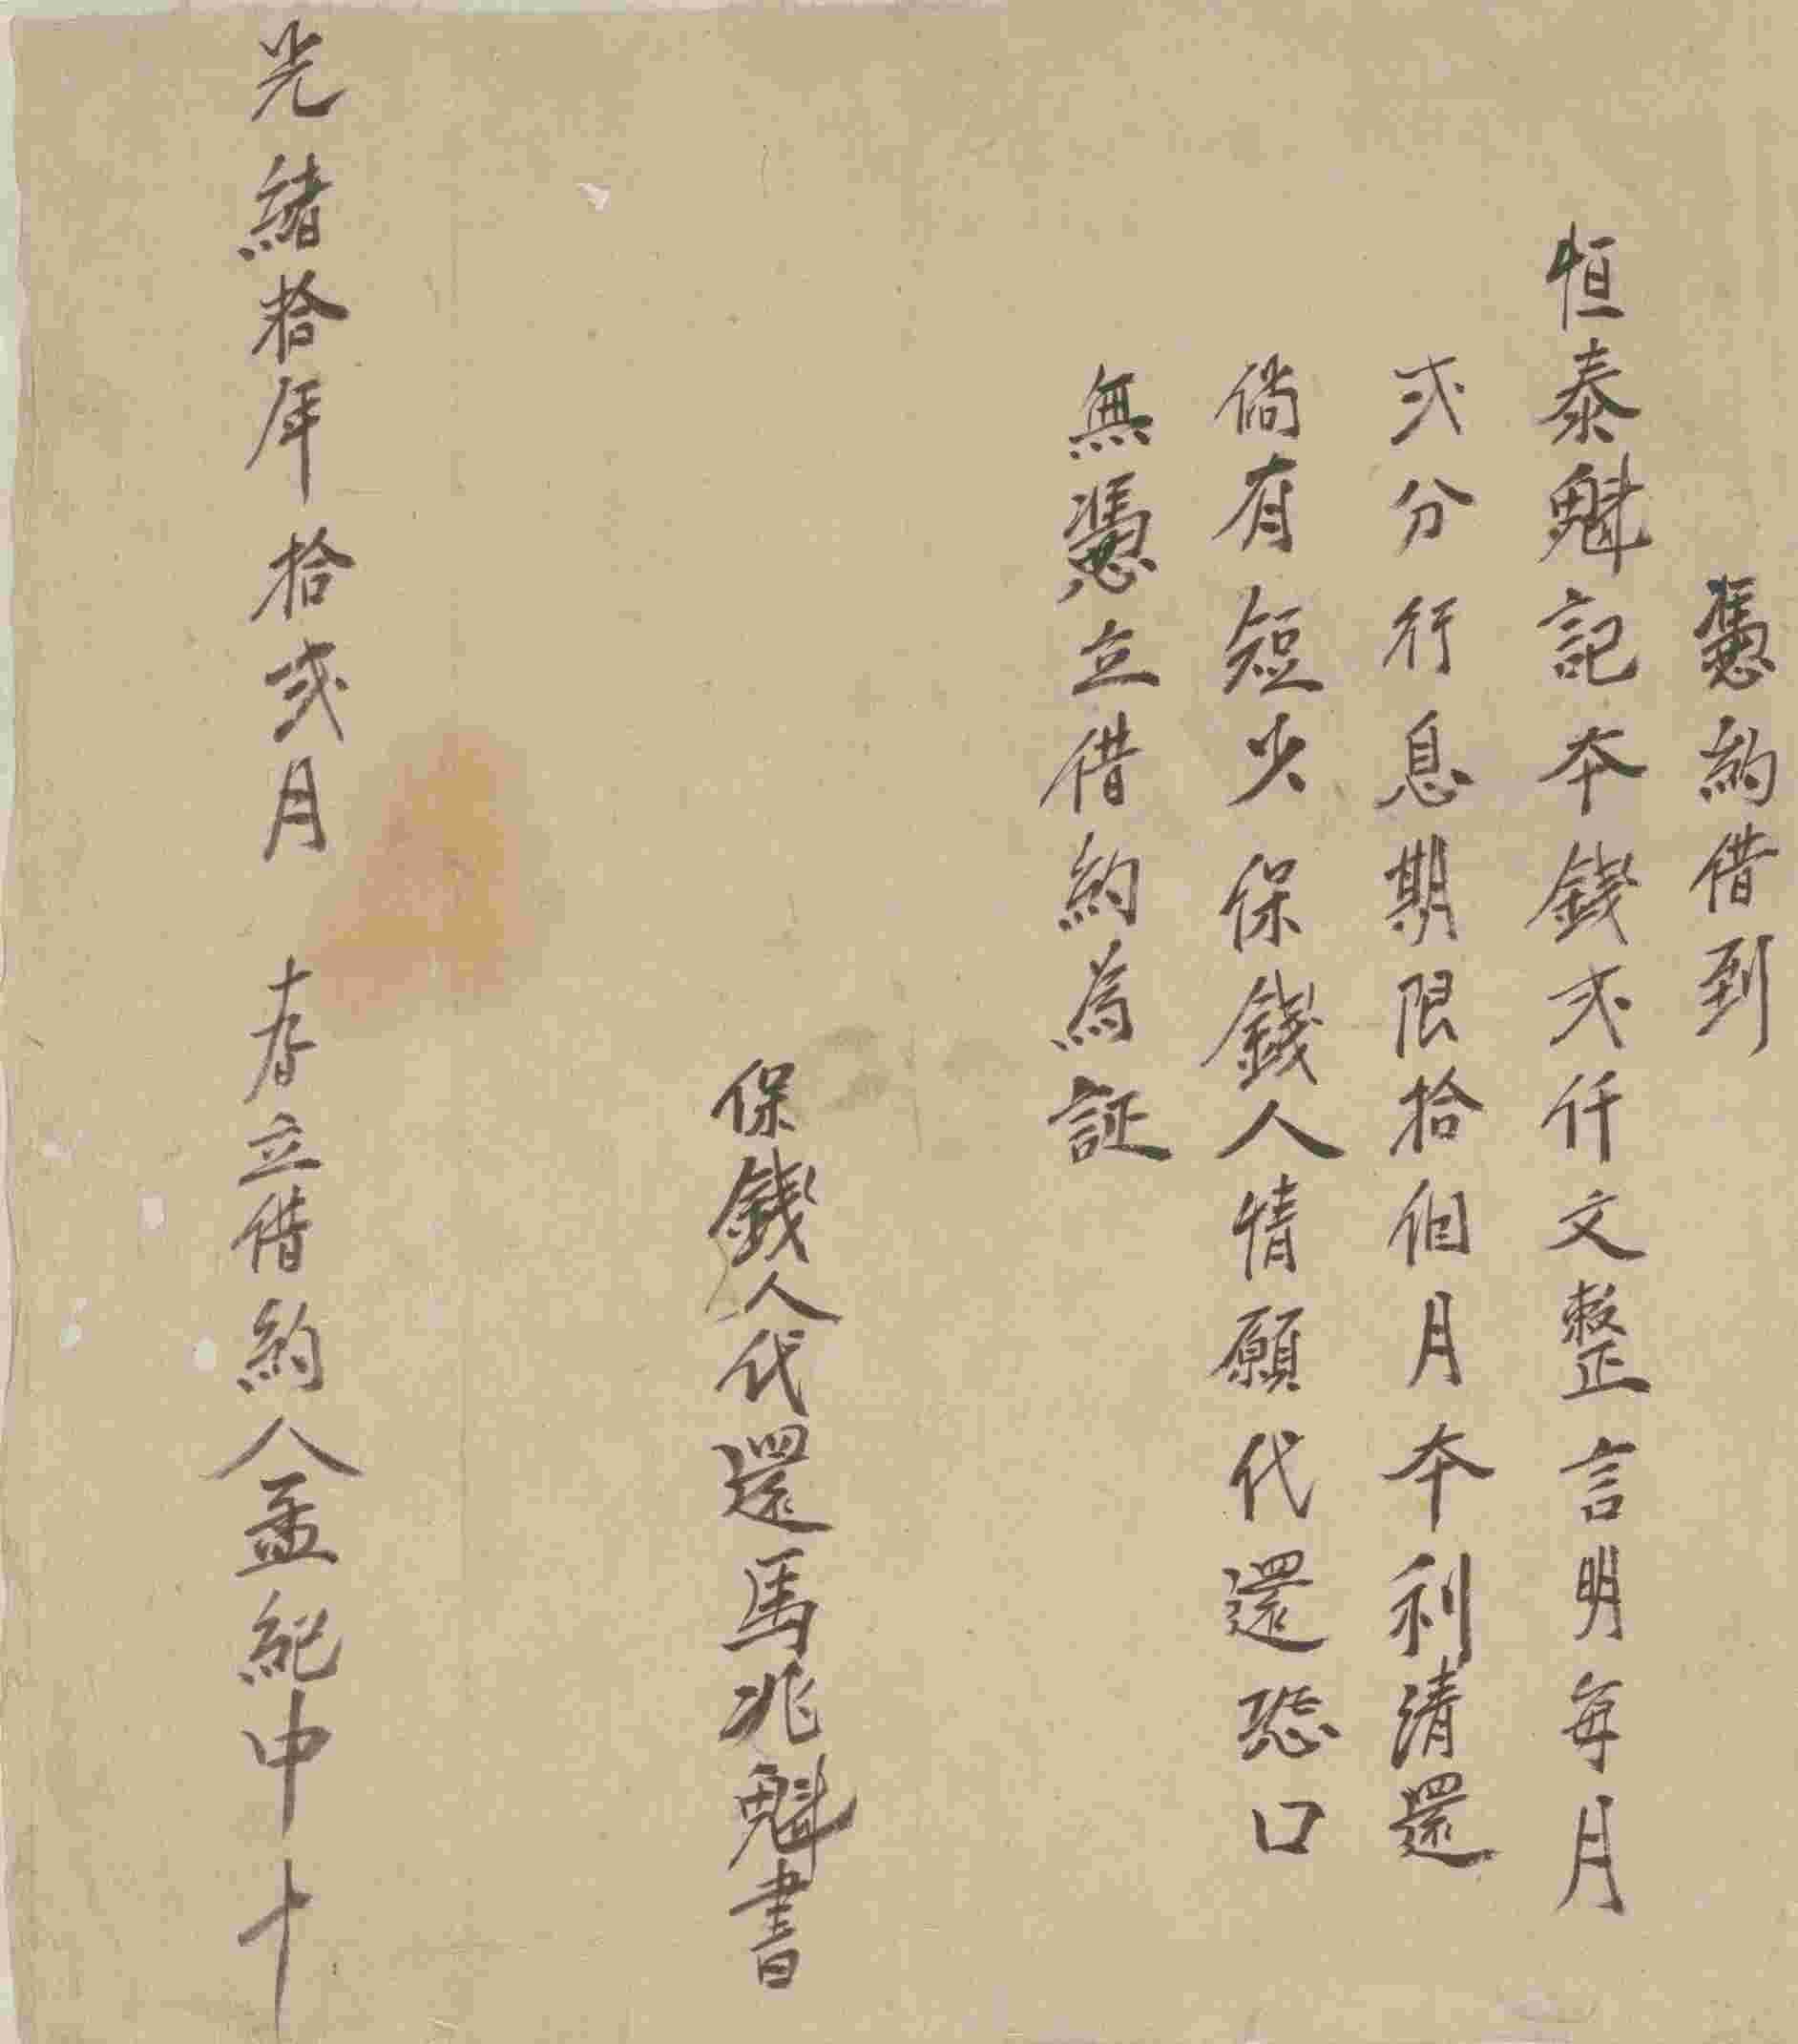 憑約借到
恒泰魁記本錢弍仟文整言明每月
弍分行息期限拾個月本利清還
倘有短少保錢人情願代還恐口
無憑立借約為証
保錢人代還馬兆魁書
光緒拾年拾弍月 立借約人孟紀中十